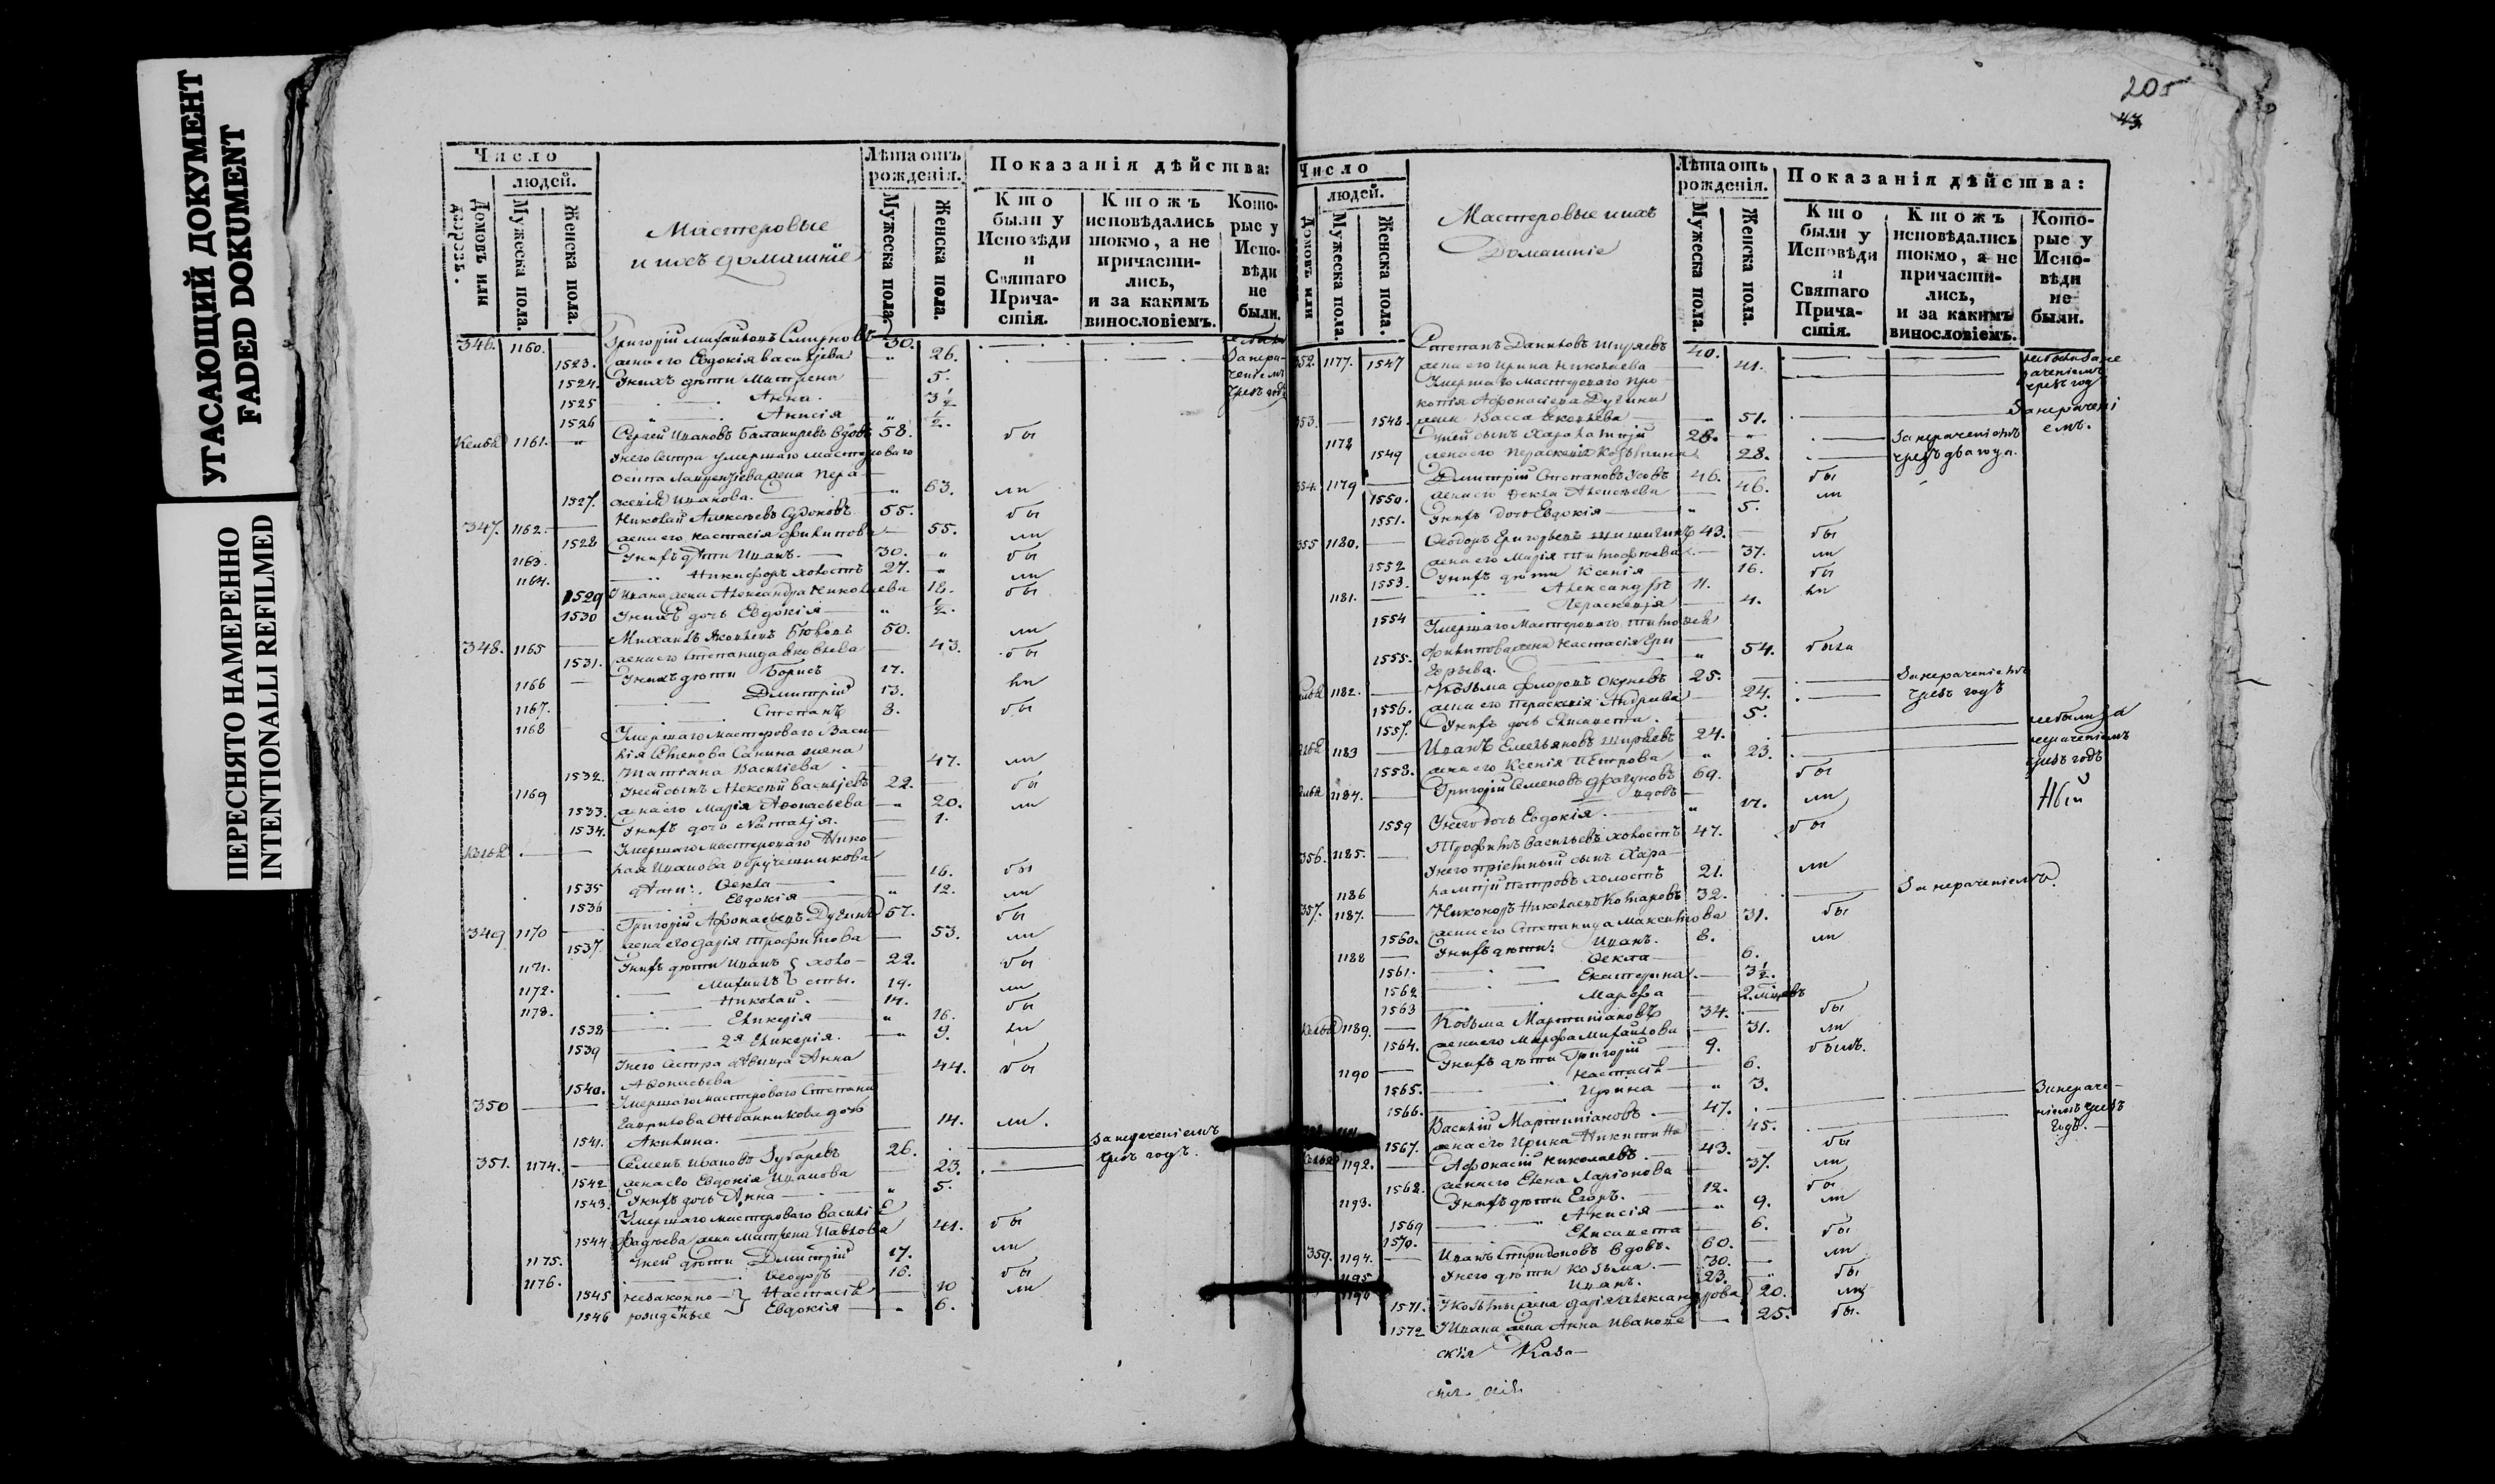 УГАСАЮЩИЙ ДОКУМЕНТ
FADED DOKUMENT
ПЕРЕСНЯТО НАМЕРЕННО
INTENTIONALLI REFILMED
205
43
Число
людей.
Домовъ или дворовъ.
Мужеска пола.
Женска пола.
Мастеровые
и ихъ домашніе
Лѣта отъ рожденія.
Мужеска пола.
Женска пола.
Показанія дѣйства:
Кто были у Исповѣди и Святаго Прича-стія.
Ктожъ исповѣдались токмо, а не причасти-лись, и за какимъ винословіемъ.
Кото-рые у Испо-вѣди не были.
346. 1160. Григорій Михайловъ Смирновъ 30.
1523. жена его Евдокія Василіева 26.
1524. У нихъ дѣти Матрена 5.
1525 Анна 3 1/2
1526 Анисія 1/2
1161. Сергей Ивановъ вдовъ 58. бы
У него сестра умершаго мастероваго
Осипа Лаврентіева жена Пера
1527. скевія Иванова. 63. ли
347. 1162. Николай Алексѣевъ 55. бы
1528 жена его Настасія Филипова 55. ли
1163. У нихъ дѣти Иванъ. 30. бы
1164. Никифоръ холостъ 27. ли
1529 У Ивана жена Александра Николаева 18. бы
1530 У нихъ дочь Евдокія 1/2
348. 1165 Михаилъ Яковлевъ 50. ли
1531. жена его Степанида Яковлева 43. бы
1166 У нихъ дѣти Борисъ 17. ли
1167. Димитрій 13.
1168 Степанъ 8. бы
Умершаго мастероваго Васи
лія Семенова Санина жена
1532. Татіана Василіева 47. ли
1169 У ней сынъ Алексѣй Василіевъ 22. бы
1533. жена его Марія Афонасьева 20. ли
1534. У нихъ дочь Наталія. 1.
Умершаго мастероваго Нико
лая Иванова Обручешникова
1535 дѣти: Фекла 16. бы
1536 Евдокія 12. ли
349 1170 Григорій Афонасьевъ Дугинъ 57. бы
1537. жена его Дарія Трофимова 53. ли
1171. У нихъ дѣти Иванъ холо- 22. бы
1172. Михаилъ сты. 19. ли
1173. Николай. 14. бы
1538 Гликерія 16.
1539 2я Гликерія. 9. ли
У него сестра дѣвица Анна
1540. Афонасьева 44. бы
350 Умершаго мастероваго Степана
Гаврилова дочь
1541. Акилина. 14. ли.
351. 1174. Семенъ Ивановъ Зубаревъ 26. За нераченіемъ
1542 жена его Евдокія Иванова 23. чрезъ годъ.
1543. У нихъ дочь Анна 5.
Умершаго мастероваго Василія
1544 Фадѣева жена Матрена Павлова 41. бы
1175. У ней дѣти Димитрій 17. ли
1176. Феодоръ 16. бы
1545 незаконно- Настасія 10 ли
1546 рожденые Евдокія 6.
Число
людей.
Домовъ или
Мужеска пола.
Женска пола.
Мастеровые и ихъ
Домашніе
Лѣта отъ рожденія.
Мужеска пола.
Женска пола.
Показанія дѣйства:
Кто были у Исповѣди и Святаго Прича-стія.
Ктожъ исповѣдались токмо, а не причасти-лись, и за какимъ винословіемъ.
Кото-рые у Испо-вѣди не были.
352. 1177. 1547 Степанъ Даниловъ Ширяевъ 40.
жена его Ирина Николаева 41.
Умершаго мастероваго Про
копія Афонасіева Дугина
353. 1548. жена Васса Яковлева 51. За нерачені
1178 У ней сынъ Харалампій 28. За нераченіемъ емъ.
1549 жена его Параскевія Козьмина 28. чрезъ два года.
354. 1179 Димитрій Степановъ Усовъ 46. бы
1550. жена его Фекла Алексѣева 46. ли
1551. У нихъ дочь Евдокія 5.
355 1180. Феодоръ Григорьевъ Шишигинъ 43. бы
1552 жена его Марія Тимофѣева 37. ли
1553. У нихъ дѣти Ксенія 16. бы
1181. Александръ 11. ли
1554 Параскевія 4.
Умершаго мастероваго Тимофея
1555. Филипова жена Настасія Гри
горьева. 54. была
1182. Козьма Флоровъ Окуневъ 25. За нераченіемъ
1556. жена его Параскевія Андреева 24. чрезъ годъ
1557. У нихъ дочь Елисавета 5.
1183 Иванъ Емельяновъ Ширяевъ 24. не были за
1558. жена его Ксенія Петрова 23. нераченіемъ чрезъ годъ
1184. Григорій Семеновъ Драгуновъ 69. бы
вдовъ
1559 У него дочь Евдокія. 17. ли
356. 1185. Трофимъ Васильевъ холостъ 47. бы
У него пріемный сынъ Хара-
1186 лампій Петровъ холостъ 21. ли
357. 1187. Никоноръ Николаевъ Комаровъ 32. За нераченіемъ.
1560. жена его Степанида Максимова 31. бы
1188 У нихъ дѣти: Иванъ. 8. ли
1561. Фекла 6.
1562 Екатерина 3 1/2.
1563 Марѳа
1189. Козьма Мартиніановъ 34. бы
1564. жена его Марфа Михайлова 31. ли
1190 У нихъ дѣти Григорій 9. былъ.
1565. Настасія 6.
1566. Ирина 3.
Василій Мартиніановъ 47. За нераче-
1567. жена его Ирина Никитина 45. ніемъ чрезъ годъ.
1192. Афонасій Николаевъ 43. бы
1568. жена его Елена Ларіонова 37. ли
1193. У нихъ дѣти Егоръ. 12. бы
1569 Анисія 9. ли
1570. Елисавета 6.
359. 1194. Иванъ Спиридоновъ вдовъ. 60. бы
1195 У него дѣти Козьма. 30. ли
1196 Иванъ. 23. бы
1571. У Козьмы жена Дарія Александрова 20. ли
1572 У Ивана жена Анна Иванова 25. бы.
скія Каза-